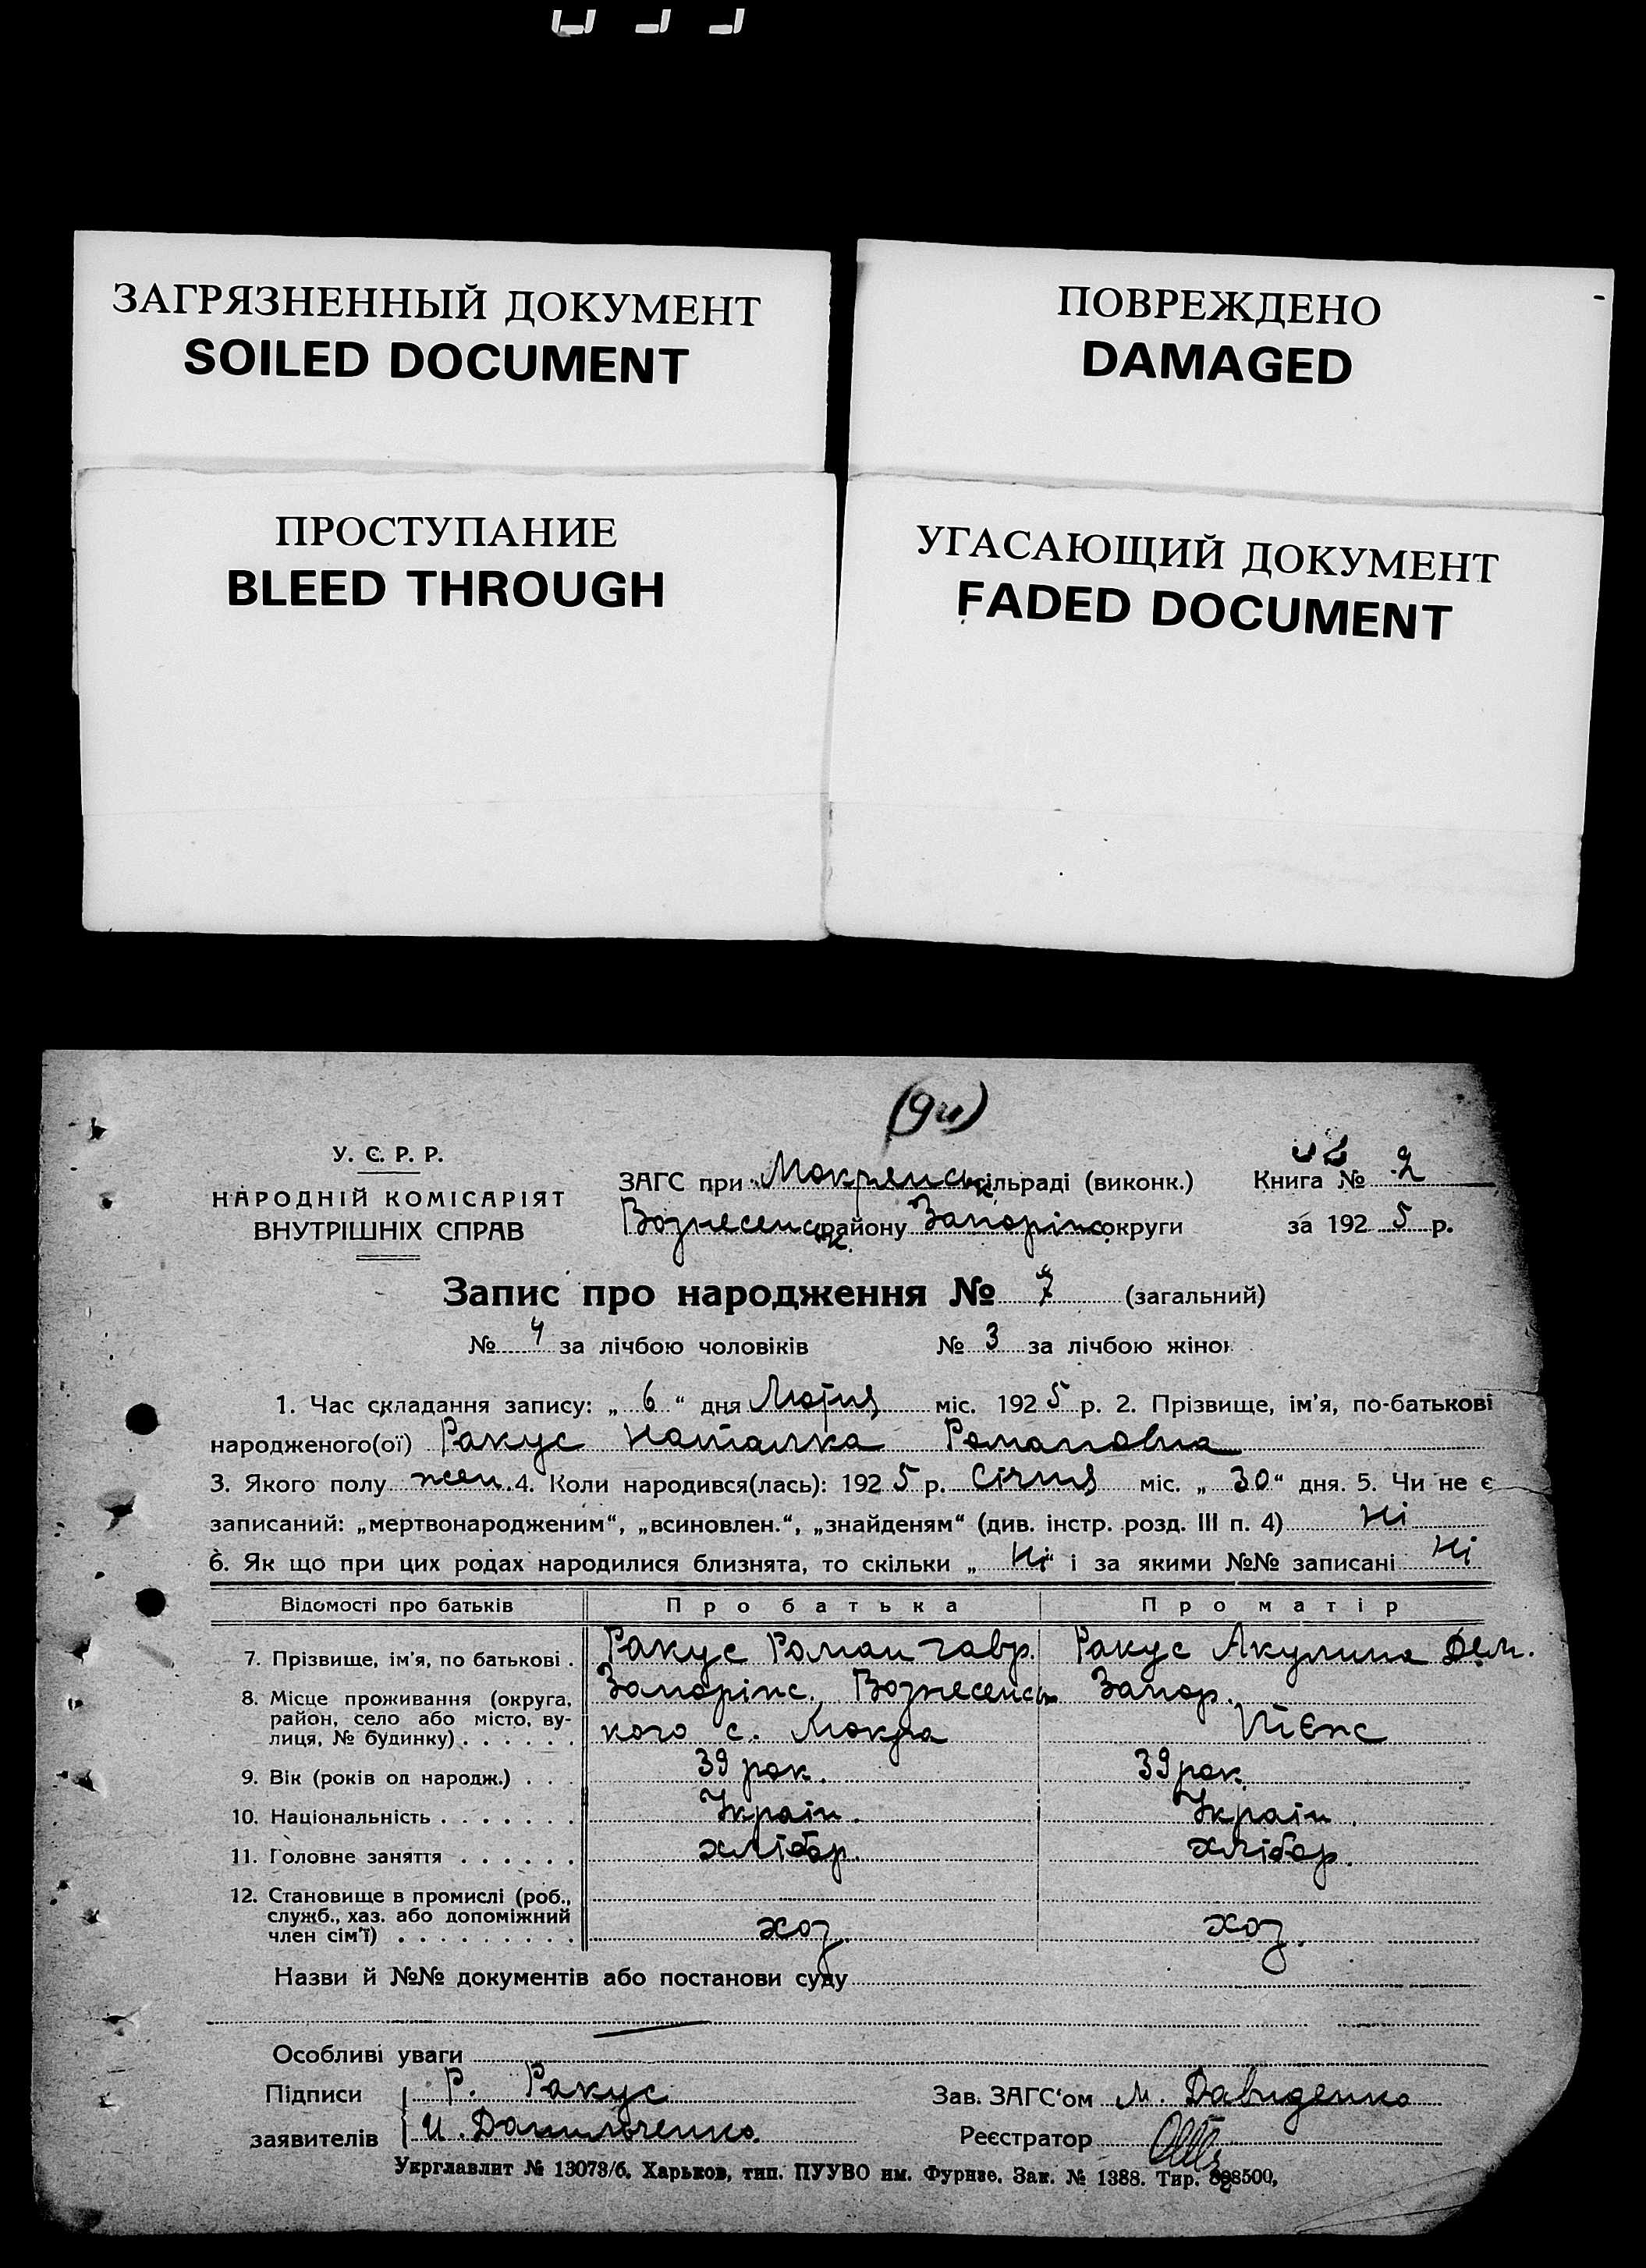 ЗАГРЯЗНЕННЫЙ ДОКУМЕНТ
SOILED DOCUMENT
ПОВРЕЖДЕНО
DAMAGED
ПРОСТУПАНИЕ
BLEED THROUGH
УГАСАЮЩИЙ ДОКУМЕНТ
FADED DOCUMENT
У. С. Р. Р.
НАРОДНІЙ КОМІСАРІЯТ
ВНУТРІШНІХ СПРАВ
ЗАГС при Мокрянськ сільраді (виконк.) Книга № 2
Вознесенськ району Запоріж округи за 1925 р.
Запис про народження № 7 (загальний)
№ 4 за лічбою чоловіків № 3 за лічбою жінок
1. Час складання запису: „ 6 “ дня Лютня міс. 1925 р. 2. Прізвище, ім'я, по-батькові
народженого(ої) Ракус Наталка Романовна
3. Якого полу жен. 4. Коли народився(лась): 1925 р. Січня міс. „ 30 “ дня. 5. Чи не є
записаний: „мертвонародженим“, „всиновлен.“, „знайденям“ (див. інстр. розд. III п. 4) Ні
6. Як що при цих родах народилися близнята, то скільки „ Ні “ і за якими №№ записані Ні
Відомості про батьків Про батька Про матір
7. Прізвище, ім'я, по батькові . Ракус Роман Гавр. Ракус Акулина Дем.
8. Місце проживання (округа, Запоріж. Вознесенсь Запор.
район, село або місто, ву-
лиця, № будинку) . . . . . . кого с. Мокра
9. Вік (років од народж.) . . . 39 рок. 39 рок.
10. Національність . . . . . . . Україн. Україн.
11. Головне заняття . . . . . . хлібор. хлібор.
12. Становище в промислі (роб.,
служб., хаз. або допоміжний
член сім'ї) . . . . . . . . . хоз. хоз.
Назви й №№ документів або постанови суду
Особливі уваги
Підписи Р. Ракус Зав. ЗАГС'ом М. Давиденко
заявителів И. Данильченко Реєстратор
Укрглавлит № 13073/6. Харьков, тип. ПУУВО им. Фрунзе. Зак. № 1388. Тир.